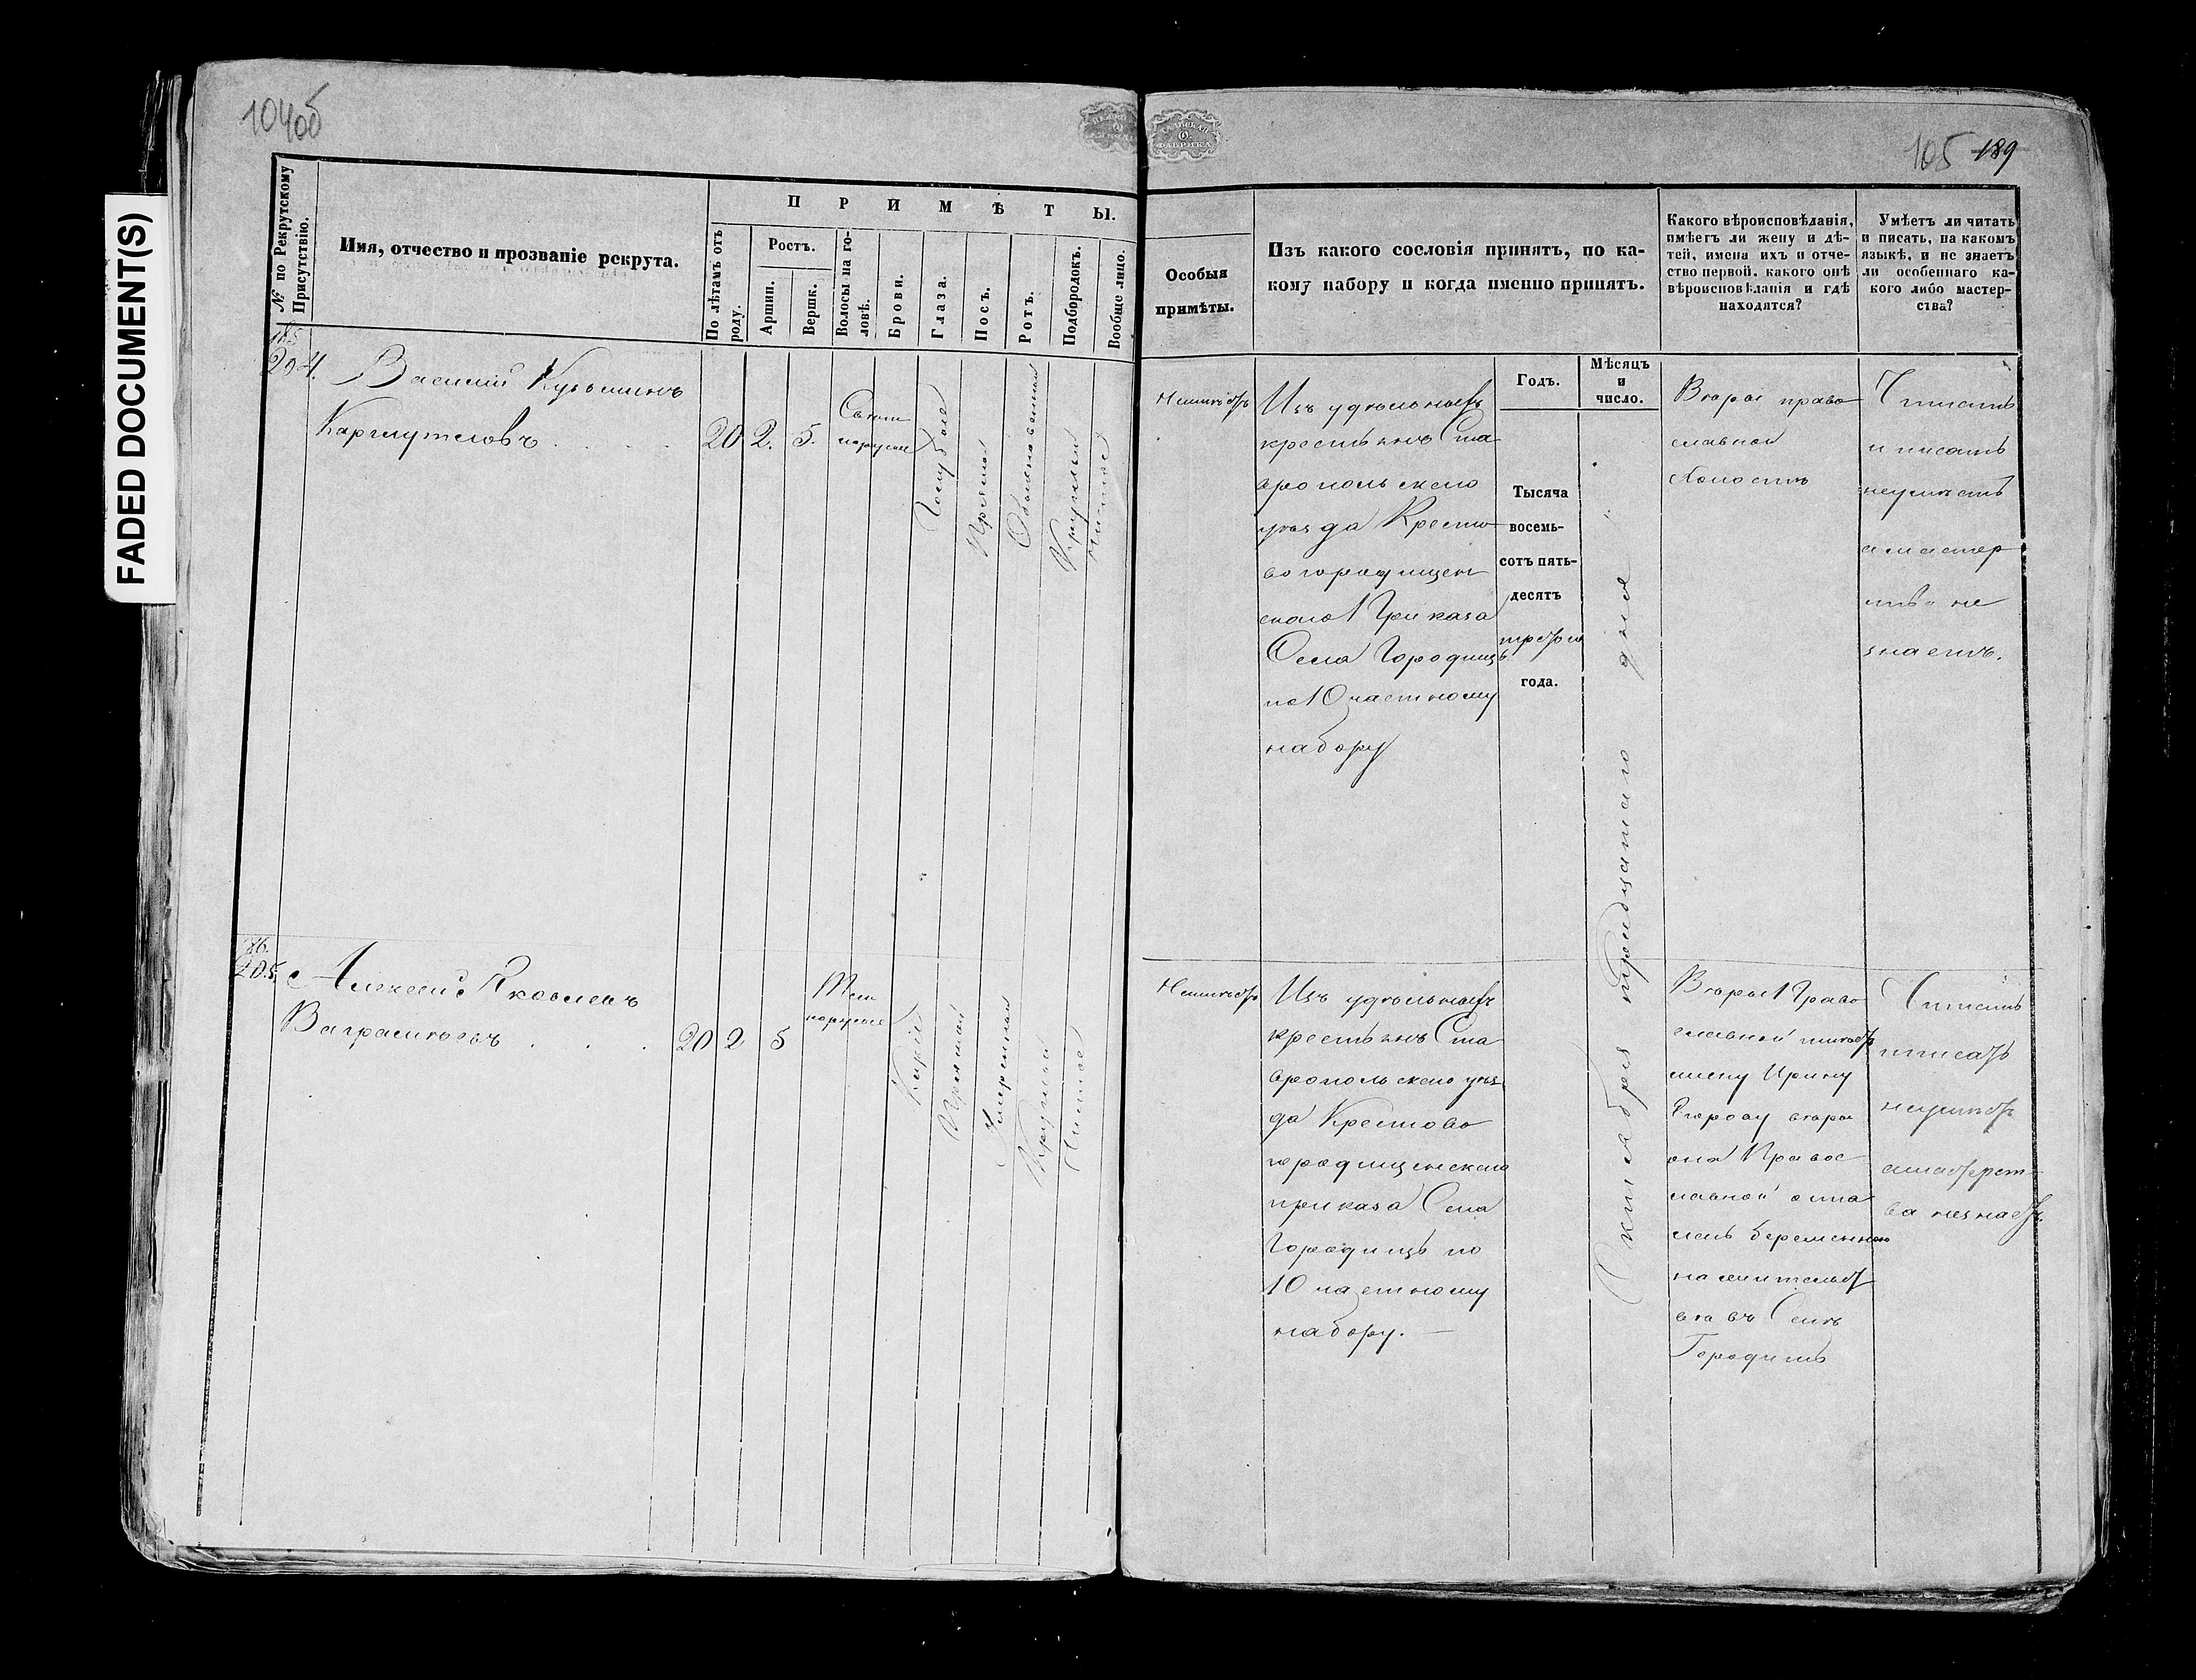 FADED DOCUMENT(S)
104об
105 189
№ по Рекрутскому Присутствію.
Имя, отчество и прозваніе рекрута.
ПРИМѢТЫ.
По лѣтамъ отъ роду.
Ростъ.
Аршин.
Вершк.
Волосы на головѣ.
Брови.
Глаза.
Носъ.
Ротъ.
Подбородокъ.
Вообще лицо.
Особыя
примѣты.
Изъ какого сословія принятъ, по ка-
кому набору и когда именно принятъ.
Какого вѣроисповѣданія,
имѣетъ ли жену и дѣ-
тей, имена ихъ и отче-
ство первой, какого онѣ
вѣроисповѣданія и гдѣ
находятся?
Умѣетъ ли читать
и писать, на какомъ
языкѣ, и не знаетъ
ли особеннаго ка-
кого либо мастер-
ства?
185
204.
Василий Кузьминъ
20 2. 5.
Светло
русые
Голубые
Прямой
Обыкновенный
Круглый
Чистое
Неимѣетъ
Изъ удѣльныхъ
крестьянъ Ста
вропольскаго
уѣзда Кресто
вогородищен
скаго Приказа
Села Городищъ
по 10 частному
набору
Годъ.
Тысяча
восемь-
сотъ пять-
десятъ
третьяго
года.
Мѣсяцъ
и
число.
Октября тридцатаго дня
Вѣры право
славной
Холостъ
Читать
и писать
неумѣетъ
а мастер
ства не
знаетъ.
186.
205.
Алексей Яковлевъ
20 2 5
Темно
русые
Карие
Прямой
Умеренный
Круглый
Чистое
Неимѣетъ
Изъ удѣльныхъ
крестьянъ Ста
вропольскаго уѣз
да Крестово
городищенскаго
приказа Села
Городищъ по
10 частному
набору. —
Вѣры Право
славной имѣетъ
жену Ирину
Егорову вѣры
она Правос
лавной оста
лась беременною
на жительст
ва въ Селѣ
Городищъ
Читать
писать
неумѣетъ
амастерст
ва незнаетъ.